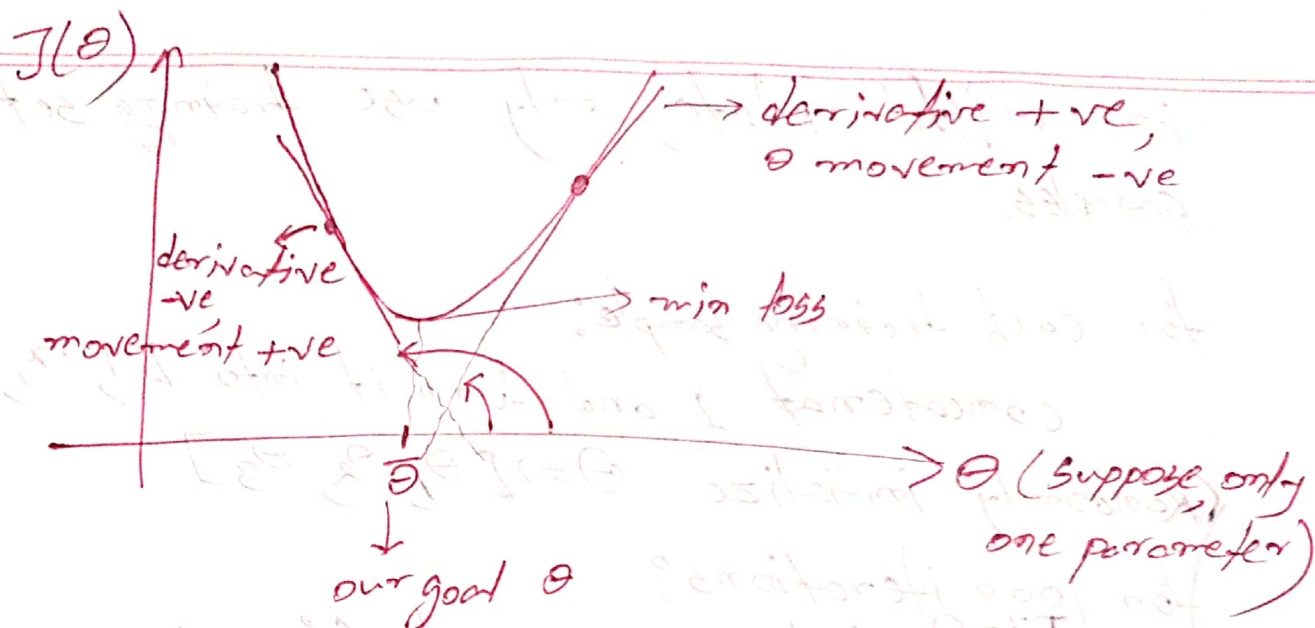 J(θ)
derivative +ve,
θ movement -ve
derivative
-ve,
movement +ve
min loss
θ̅
θ (suppose, only
one parameter)
our goal θ